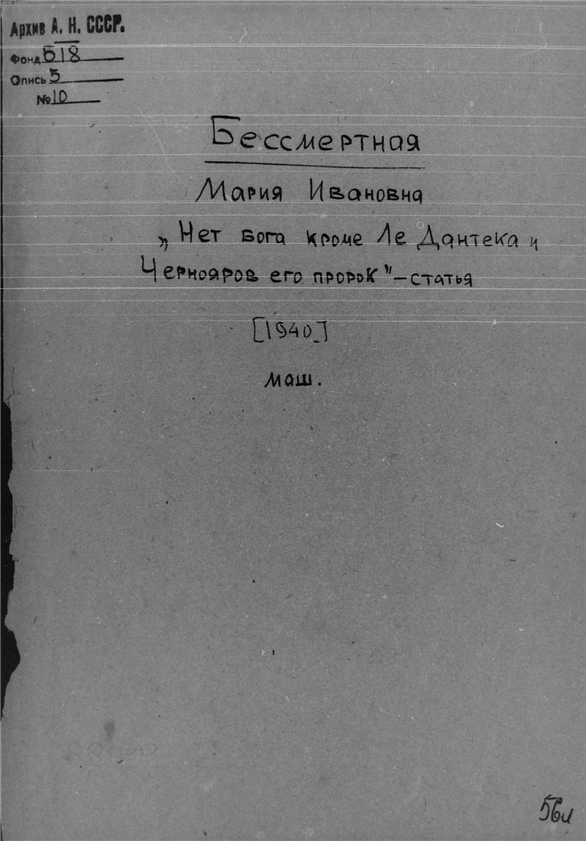 Архив А. Н. СССР.
Фонд 518
Опись 5
№ 10
Бессмертная
Мария Ивановна
„Нет бога кроме Ле Дантека и
Чернояров его пророк" – статья
[1940]
маш.
56л